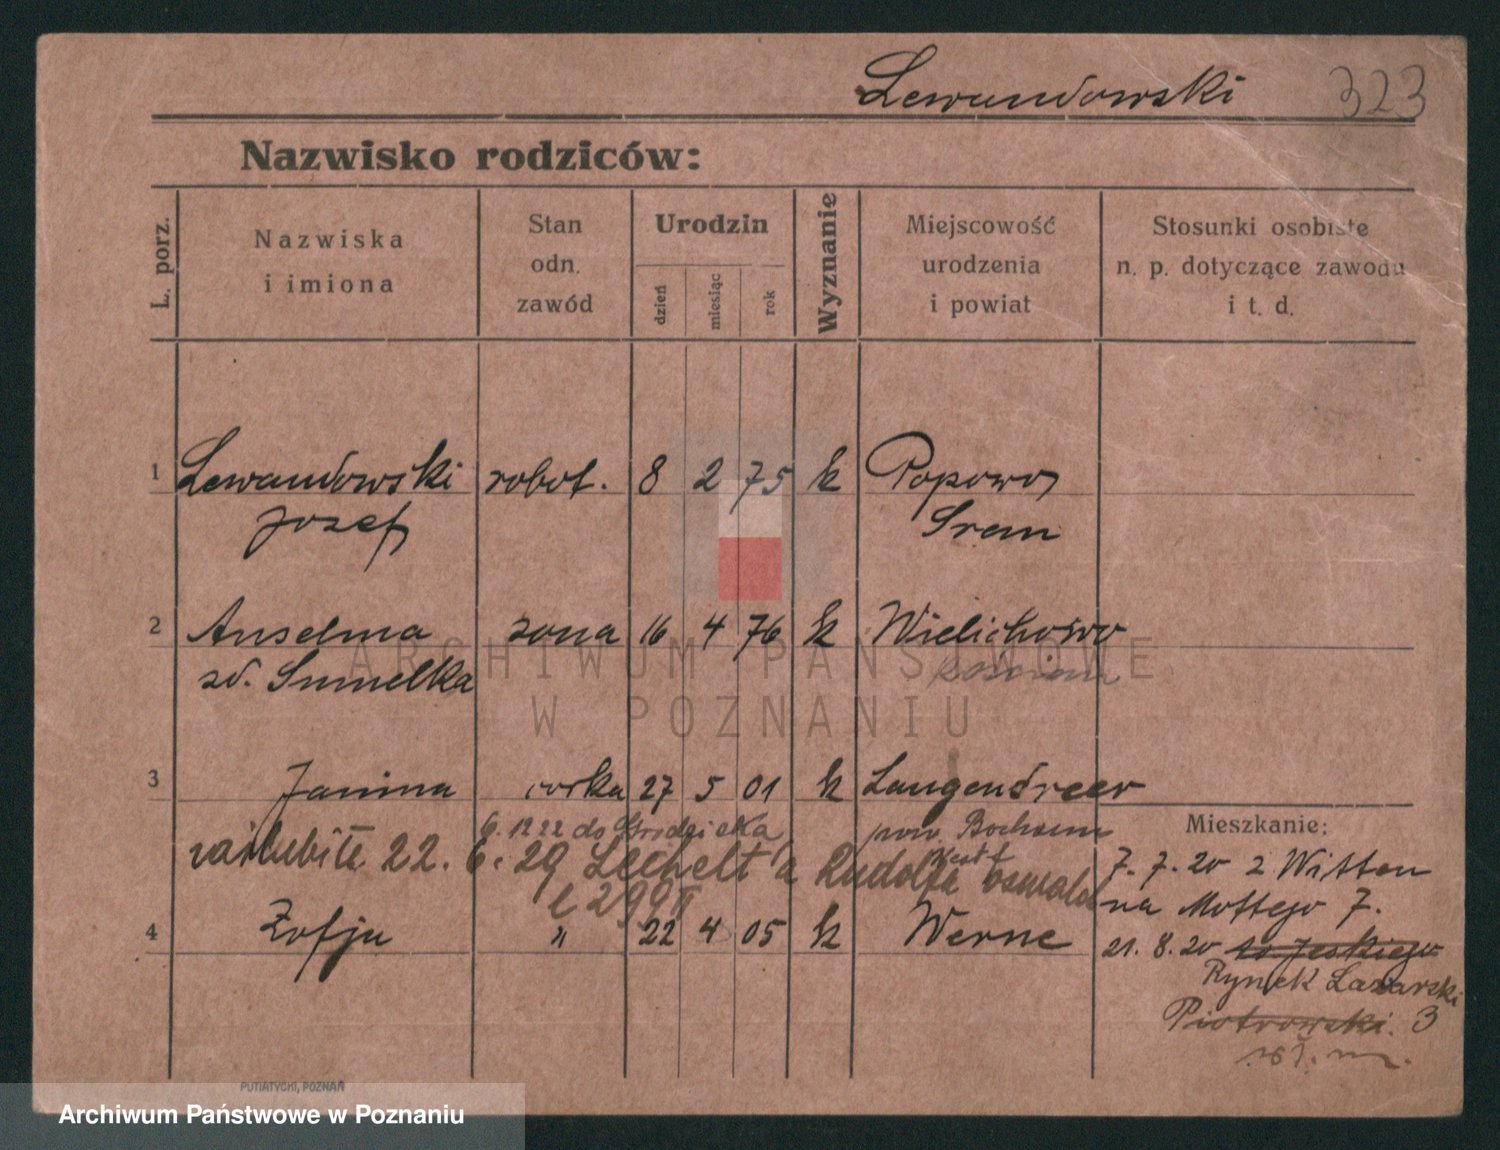 Lewandowski 323
Nazwisko rodziców:
L. porz.
Nazwiska
i imiona
Stan
odn.
zawód
Urodzin
dzień
miesiąc
rok
Wyznanie
Miejscowość
urodzenia
i powiat
Stosunki osobiste
n. p. dotyczące zawodu
i t. d.
1 Lewandowski robot. 8 2 75 k Popowo
Jozef Srem
2 Anselma zona 16 4 76 k Wielichowo
zd. Smuelka
ARCHIWUM PAŃSTWOWE
W POZNANIU
3 Janina corka 27 5 01 k Langendreer
6. 12 22 do Grodziska pow. Bochum
Westf
22. 6. 29 Lechelt'a Rudolfa Oswalda
4 Zofja " 22 4 05 k Werne
Mieszkanie:
7. 7. 20 z Witten
na Mottego 7.
21. 8. 20
Rynek Lazarski
Piotrowski. 3
PUTIATYCKI, POZNAŃ
Archiwum Państwowe w Poznaniu